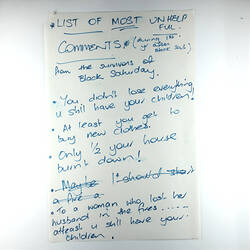 • LIST OF MOST UNHELP
FUL
COMMENTS (during 1st
yr after
Black Sat)
from the survivors of
Black Saturday.
• You didn't lose everything
u still have your children!
• At least you get to
buy new clothes.
• Only 1/2 your house
burnt down!
• To a woman who lost her
husband in the fires ....
atleast u still have your
children.